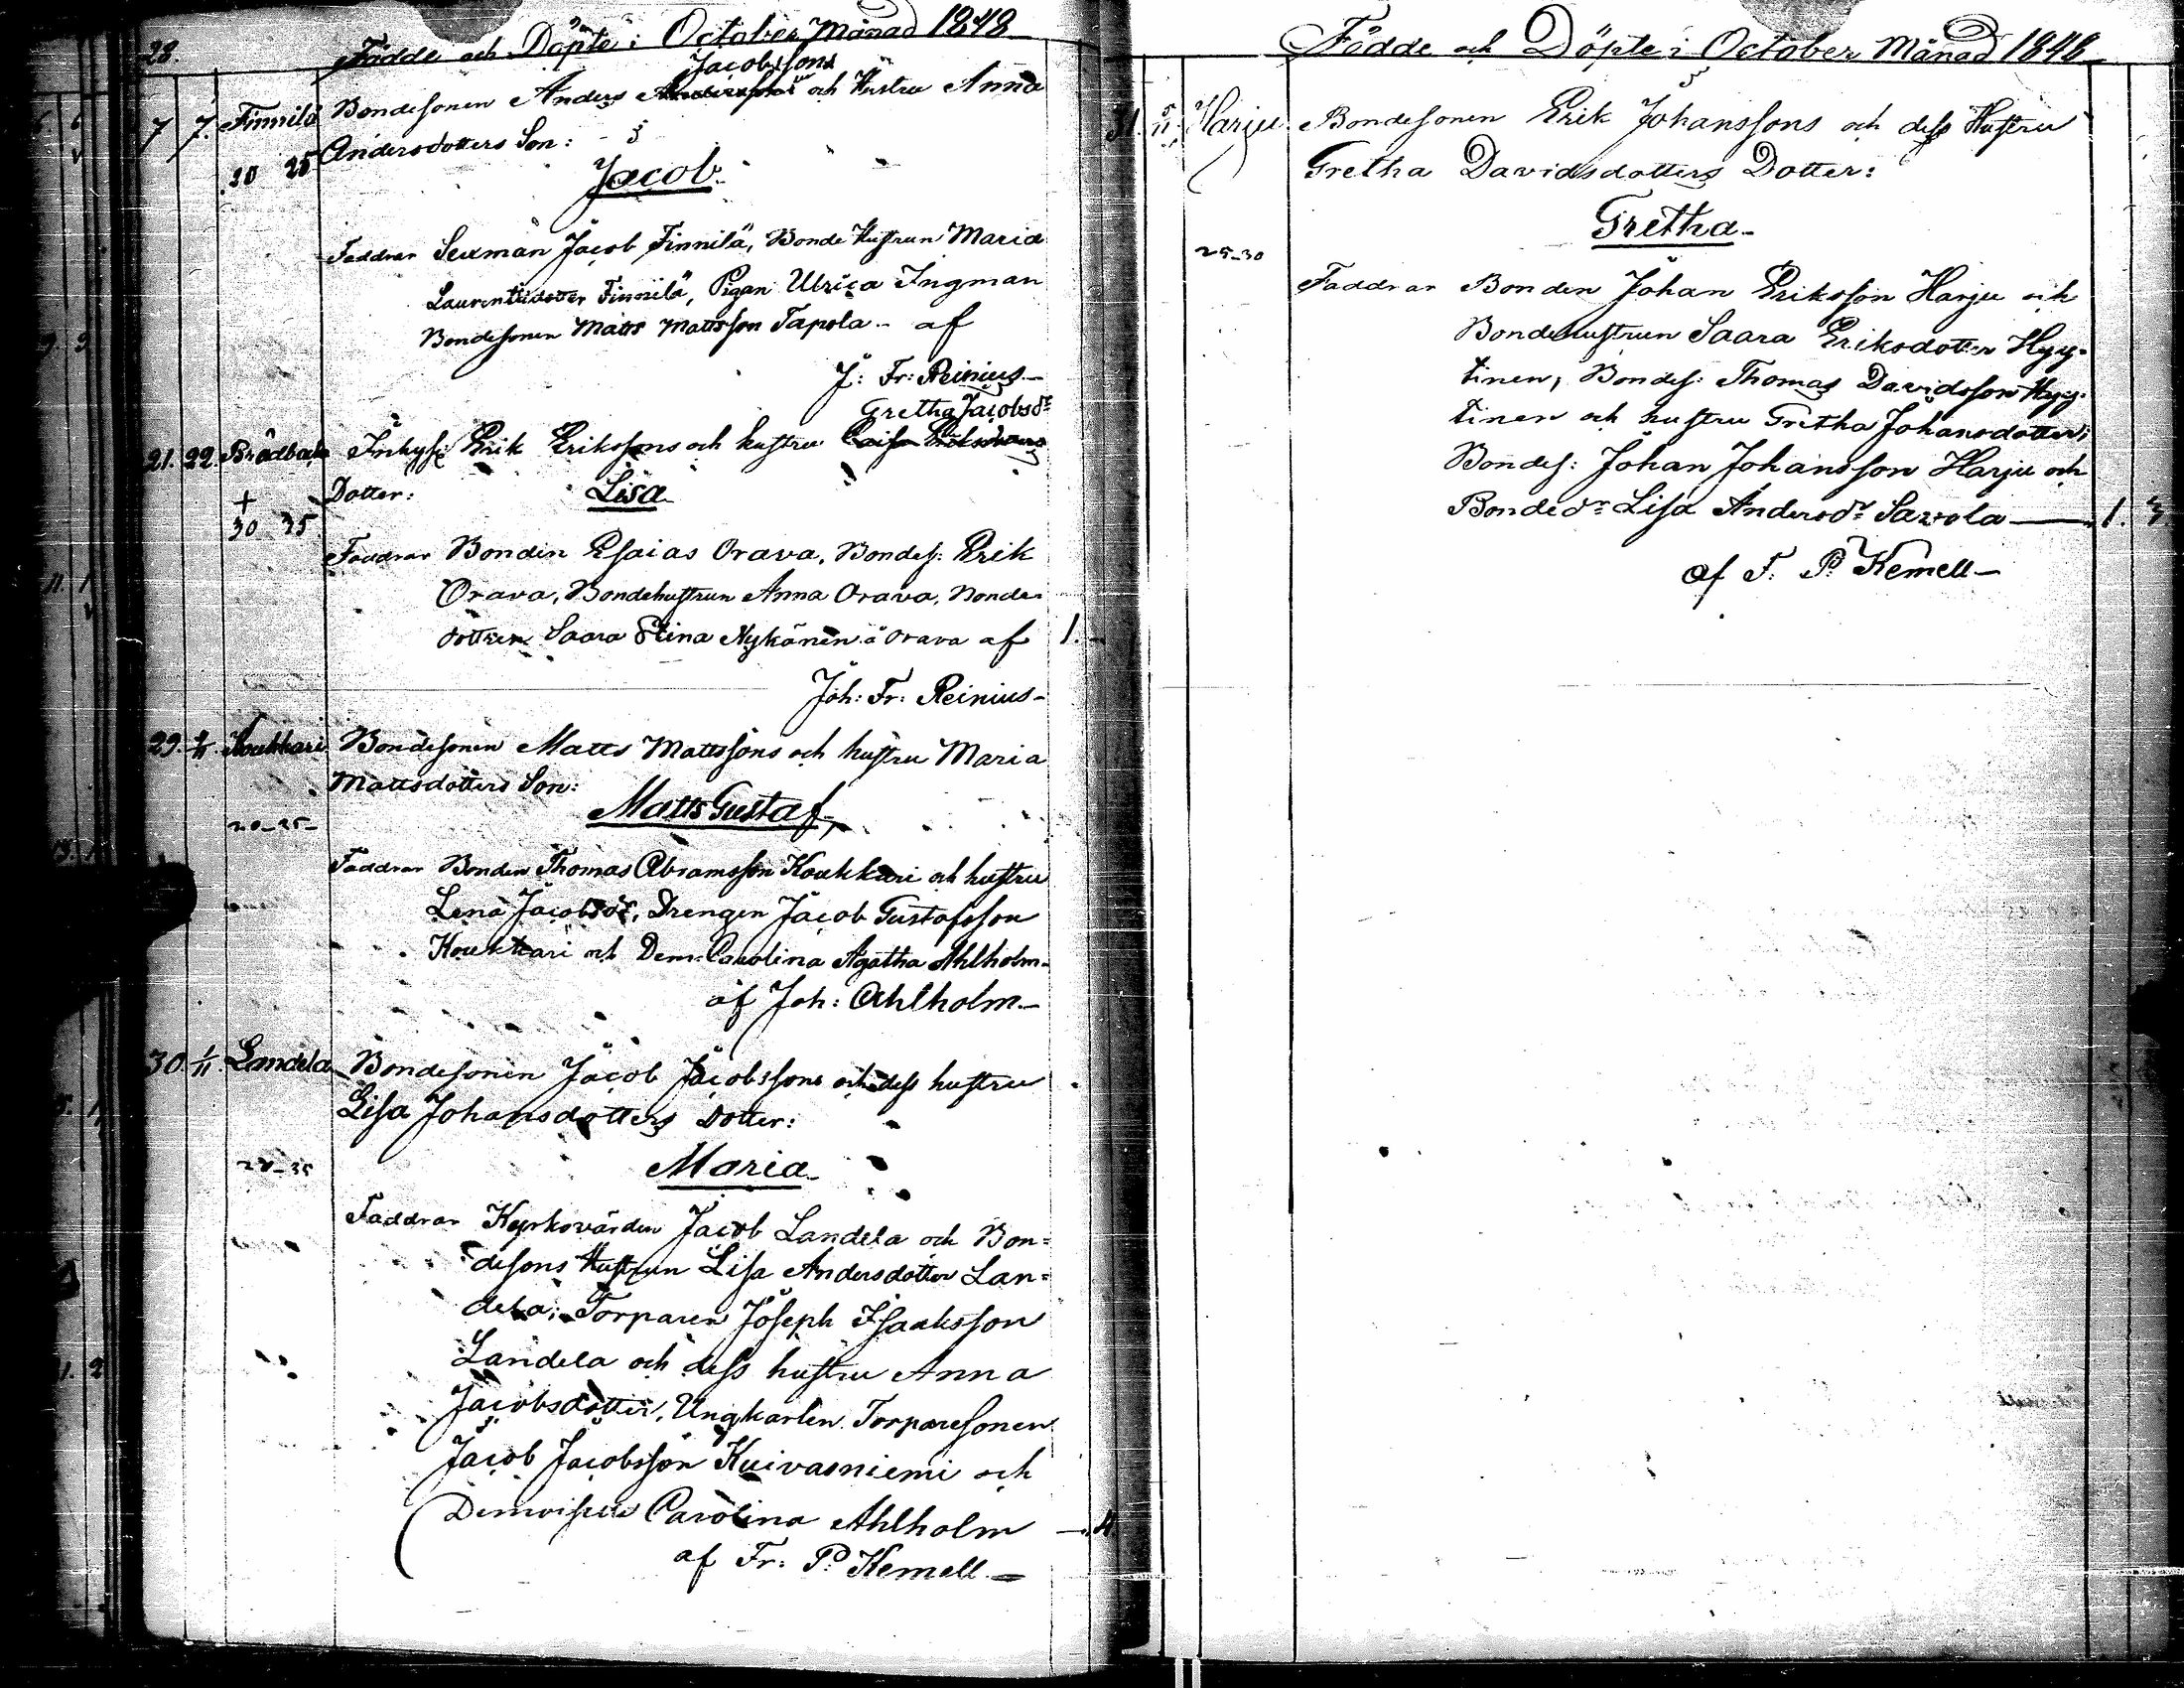 28.
Födde och Döpte i October Månad 1848
Jacobssons
7 7. Finnilä Bondesonen Anders och Hustru Anna
Andersdotters Son:
30 25
Jacob
Faddrar Sexman Jacob Finnilä, Bonde Hustrun Maria
Laurentiidotter Finnilä, Pigan Ulrica Ingman
Bondesonen Matts Mattsson Tapola - af
J: Fr: Reinius
Gretha Jacobsdr
21. 22. Brådbacka Inhyse Erik Erikssons och hustru
Dotter: Lisa
+
30 35
Faddrar Bonden Esaias Orava, Bondes: Erik
Orava, Bondehustrun Anna Orava, Bonde
dottren Saara Stina Nykänen å Orava af 1.
Joh: Fr: Reinius
29. Koukkari Bondesonen Matts Mattssons och hustru Maria
Mattsdotters Son:
Matts Gustaf,
20-25-
Faddrar Bonden Thomas Abramsson Koukkari och hustru
Lena Jacobsdr, Drengen Jacob Gustafsson
Koukkari och Dem: Carolina Agatha Ahlholm
af Joh: Ahlholm
30. 1/11 Landela Bondesonen Jacob Jacobssons och dess hustru
Lisa Johansdotters Dotter:
Maria
Faddrar Kyrkovärden Jacob Landela och Bon=
desons Hustrun Lisa Andersdotter Lan=
dela; Torparen Joseph Isaaksson
Landela och dess hustru Anna
Jacobsdotter, Ungkarlen Torparesonen
Jacob Jacobsson Kuivasniemi och
Demoiselle Carolina Ahlholm 4
af Fr: P: Kemell
Födde och Döpte i October Månad 1848
31. 5/11 Harju Bondesonen Erik Johanssons och dess Hustru
Gretha Davidsdotters Dotter:
Gretha
25-30
Faddrar Bonden Johan Eriksson Harju och
Bondehustrun Saara Eriksdotter Hyy-
tinen, Bondes: Thomas Davidsson Hyy-
tinen och hustru Gretha Johansdotter;
Bondes: Johan Johansson Harju och
Bondedr Lisa Andersdr Savola 1. 3
af F. P. Kemell